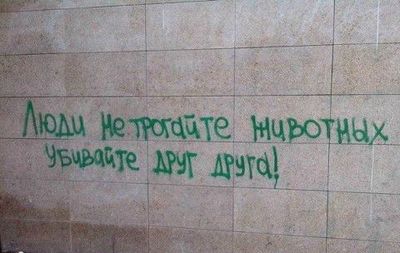 Люди не трогайте животных
убивайте друг друга!